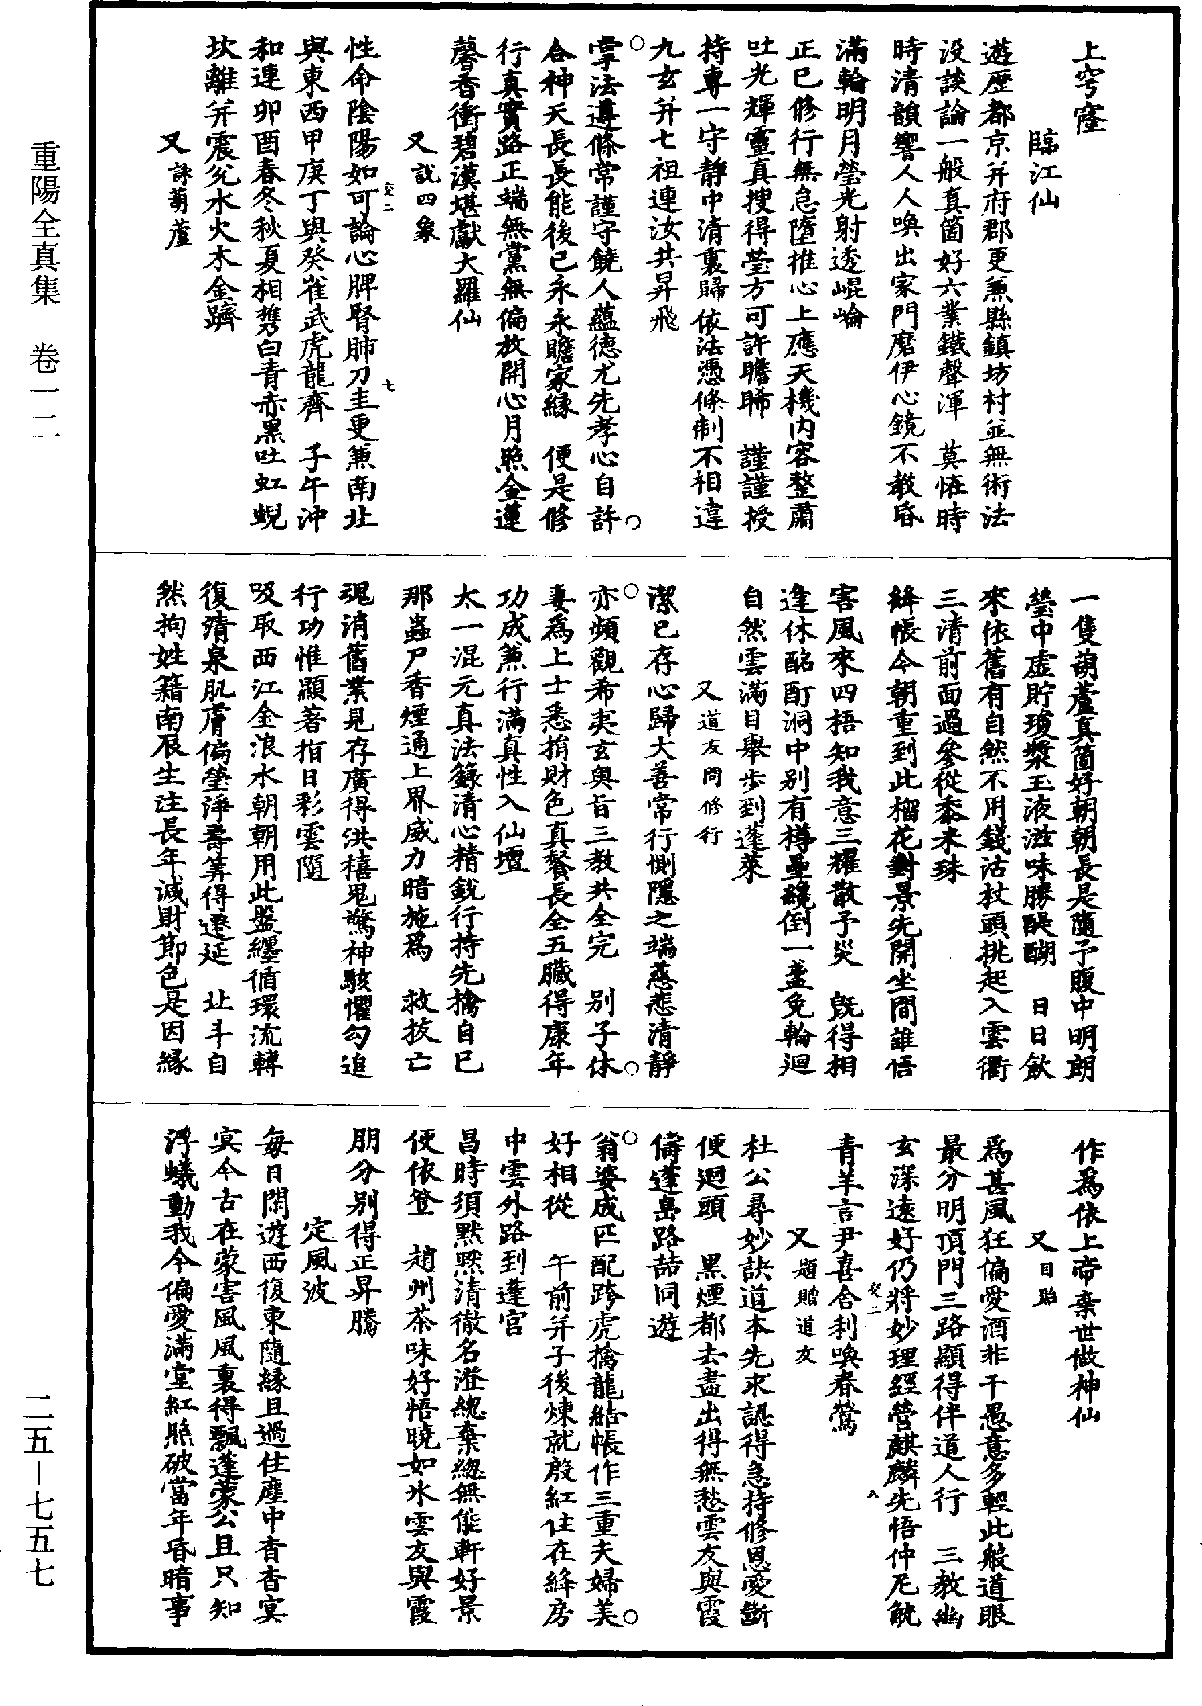 上穹窿
臨江仙
遊歷都京并府郡更兼縣鎮坊村並無術法
没談論一般真箇好六業鐵聲渾　莫恠時
時清韻響人人喚出家門磨伊心鏡不教昏
滿輪明月瑩光射透崐崘
正已修行無怠墮推心上應天機内容整肅
吐光輝靈真搜得瑩方可許瞻睎　謹謹授
持專一守靜中清裏歸依法憑條制不相違
九玄并七祖連汝共昇飛
掌法遵條常謹守饒人蘊德尤先孝心自許
合神天長長能後已永永贍家緣　便是修
行真實路正端無黨無偏放開心月照金蓮
馨香衝碧漢堪獻大羅仙
又　說四象
性命陰陽如可論心脾腎肺刀圭更兼南北
與東西甲庚丁與癸雀武虎龍齊　子午沖
和連卯酉春冬秋夏相擕白青赤黑吐虹蜺
坎離并震兌水火木金躋
又　詠葫蘆
一隻葫蘆真箇好朝朝長是隨予腹中明朗
瑩中虚貯瓊漿玉液滋味勝醍醐　日日飲
來依舊有自然不用錢沽杖頭挑起入雲衢
三清前面過參從黍米珠
絳帳今朝重到此榴花對景先開坐間誰悟
害風來四梧知我意三耀散子災　旣得相
逢休酩酊洞中别有罇罍纔倒一盞免輪迴
自然雲滿目舉步到蓬萊
又　道友問修行
潔已存心歸大善常行惻隱之端慈悲清靜
亦頻觀希夷玄與旨三教共全完　别子休
妻爲上士悉捐財色真餐長全五臟得康年
功成兼行滿真性入仙壇
太一混元真法籙清心精銳行持先擒自已
那蟲尸香煙通上界威力暗施爲　救拔亡
魂消舊業見存廣得洪禧鬼驚神駭懼勾追
行功惟顯著指日彩雲隨
吸取西江金浪水朝朝用此盤纏循環流轉
復清泉肌膚偏瑩淨壽筭得遷延　北斗自
然拘姓籍南辰生注長年減財節色是因緣
作爲依上帝棄世做神仙
又　目貽
爲甚風狂偏愛酒非干愚意多輕此般道眼
最分明頂門三路顯得伴道人行　三教幽
玄深遠好仍將妙理經營麒麟先悟仲尼觥
青羊言尹喜舍利喚春鶯
又　題贈道友
杜公尋妙訣道本先求認得急持修恩愛斷
便迴頭　黑煙都去盡出得無愁雲友與霞
儔蓬島路喆同遊
翁婆成匹配跨虎擒龍結帳作三重夫婦美
好相從　午前并子後煉就殷紅住在絳房
中雲外路到蓬宫
昌時須黙黙清徹名澄總棄總無能軒好景
便依登　趙州茶味好悟曉如氷雲友與霞
朋分别得正昇騰
定風波
每日閑遊西復東隨緣且過住塵中杳杳冥
冥今古在蒙害風風裏得飄蓬蒙公且只知
浮蟻動我今偏愛滿堂紅照破當年昏暗事
重陽全真集　卷一二
二五—七五七